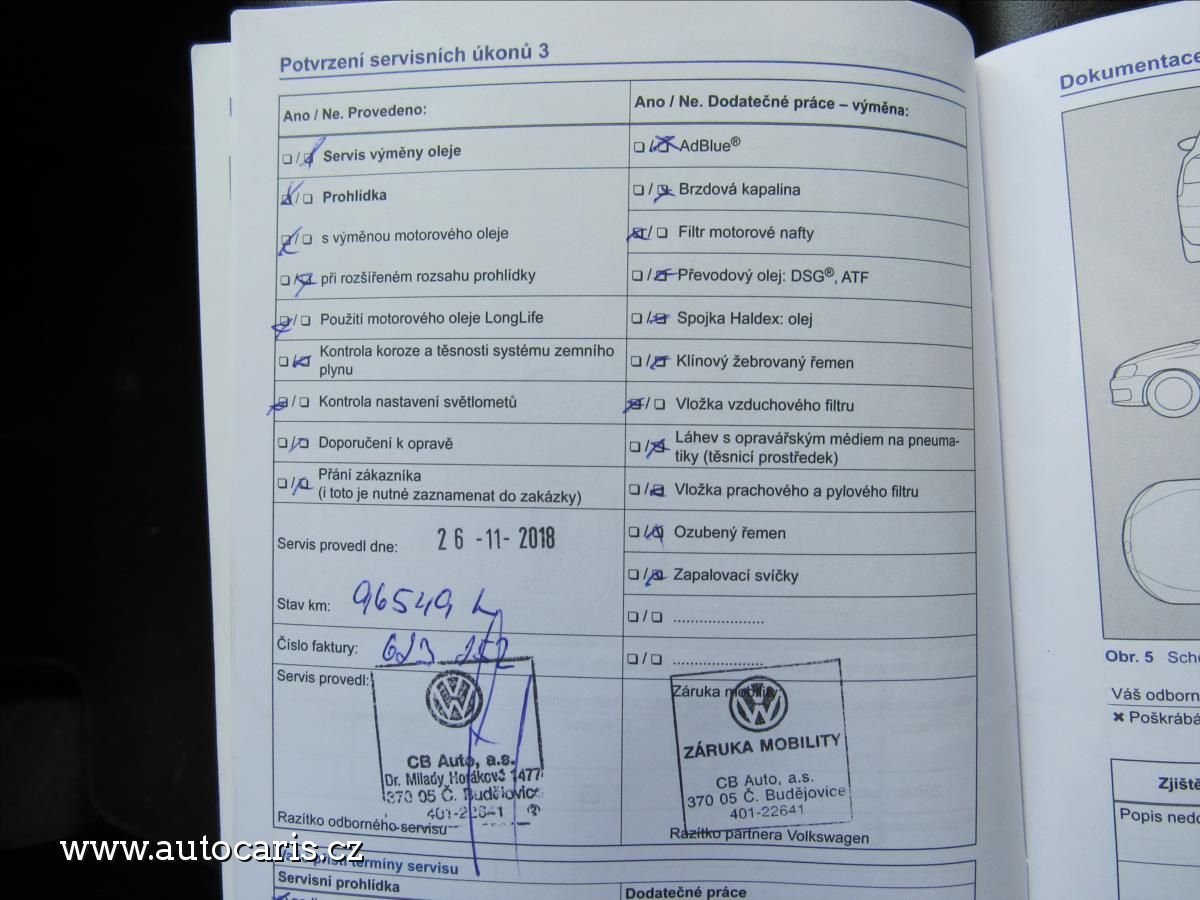 Potvrzení servisních úkonů 3
Ano / Ne. Provedeno:
Servis výměny oleje
Prohlídka
s výměnou motorového oleje
při rozšířeném rozsahu prohlídky
Použití motorového oleje LongLife
Kontrola koroze a těsnosti systému zemního
plynu
Kontrola nastavení světlometů
Doporučení k opravě
Přání zákazníka
(i toto je nutné zaznamenat do zakázky)
Servis provedl dne: 26 -11- 2018
Stav km: 96549
Číslo faktury: 623 252
Servis provedl:
CB Auto, a.s.
Dr. Milady Horákové 1477
370 05 Č. Budějovice
401-22641
Razítko odborného servisu
Ano / Ne. Dodatečné práce – výměna:
AdBlue®
Brzdová kapalina
Filtr motorové nafty
Převodový olej: DSG®, ATF
Spojka Haldex: olej
Klínový žebrovaný řemen
Vložka vzduchového filtru
Láhev s opravářským médiem na pneuma-
tiky (těsnicí prostředek)
Vložka prachového a pylového filtru
Ozubený řemen
Zapalovací svíčky
....................
....................
Záruka mobility:
ZÁRUKA MOBILITY
CB Auto, a.s.
370 05 Č. Budějovice
401-22641
Razítko partnera Volkswagen
příští termíny servisu
Servisní prohlídka
Dodatečné práce
Dokumentace
Obr. 5
Váš odborn
✖ Poškrábá
Zjiště
Popis nedo
www.autocaris.cz